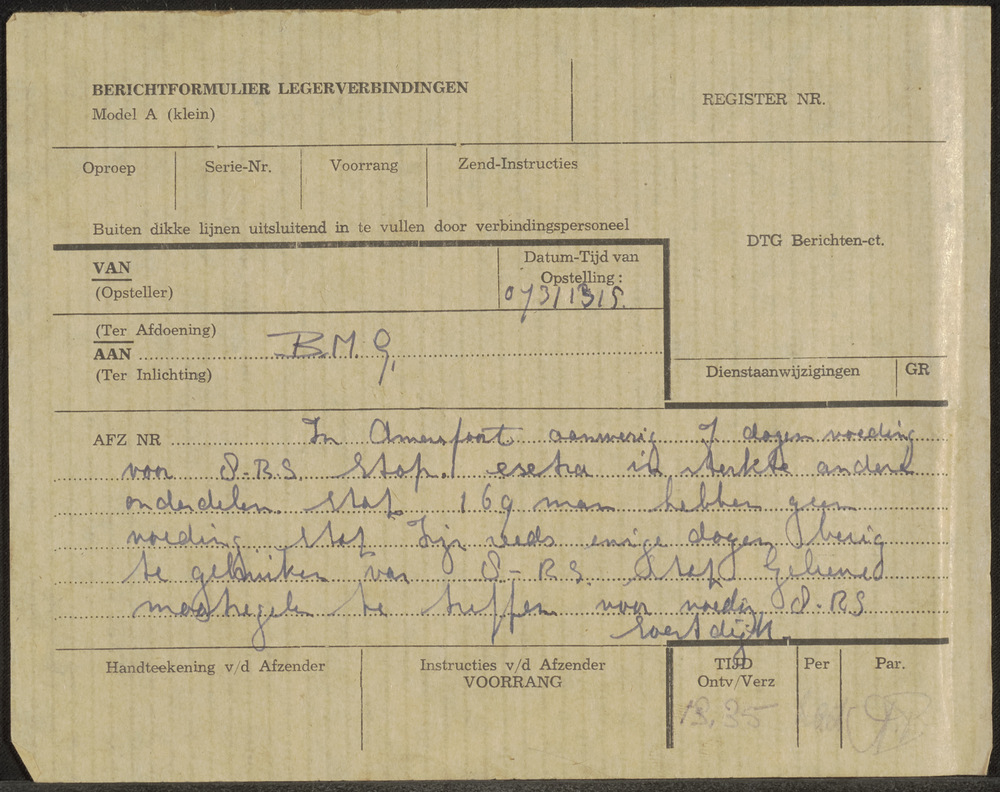 BERICHTFORMULIER LEGERVERBINDINGEN
Model A (klein)
REGISTER NR.
Oproep Serie-Nr. Voorrang Zend-Instructies
Buiten dikke lijnen uitsluitend in te vullen door verbindingspersoneel
DTG Berichten-ct.
VAN
(Opsteller)
Datum-Tijd van
Opstelling:
(Ter Afdoening)
AAN B.M.G.
(Ter Inlichting)
Dienstaanwijzigingen GR
AFZ NR In Amersfoort aanwezig 7 dagen voeding
voor 8-R.S. Stop. extra in sterkte andere
onderdelen. Stop. 169 man hebben geen
voeding. Stop Zijn reeds enige dagen bezig
te gebruiken van 8-R.S. Stop Gelieve
maatregelen te treffen voor 8-RS
Soestdijk.
Handteekening v/d Afzender
Instructies v/d Afzender
VOORRANG
TIJD
Ontv/Verz
Per Par.
13.35